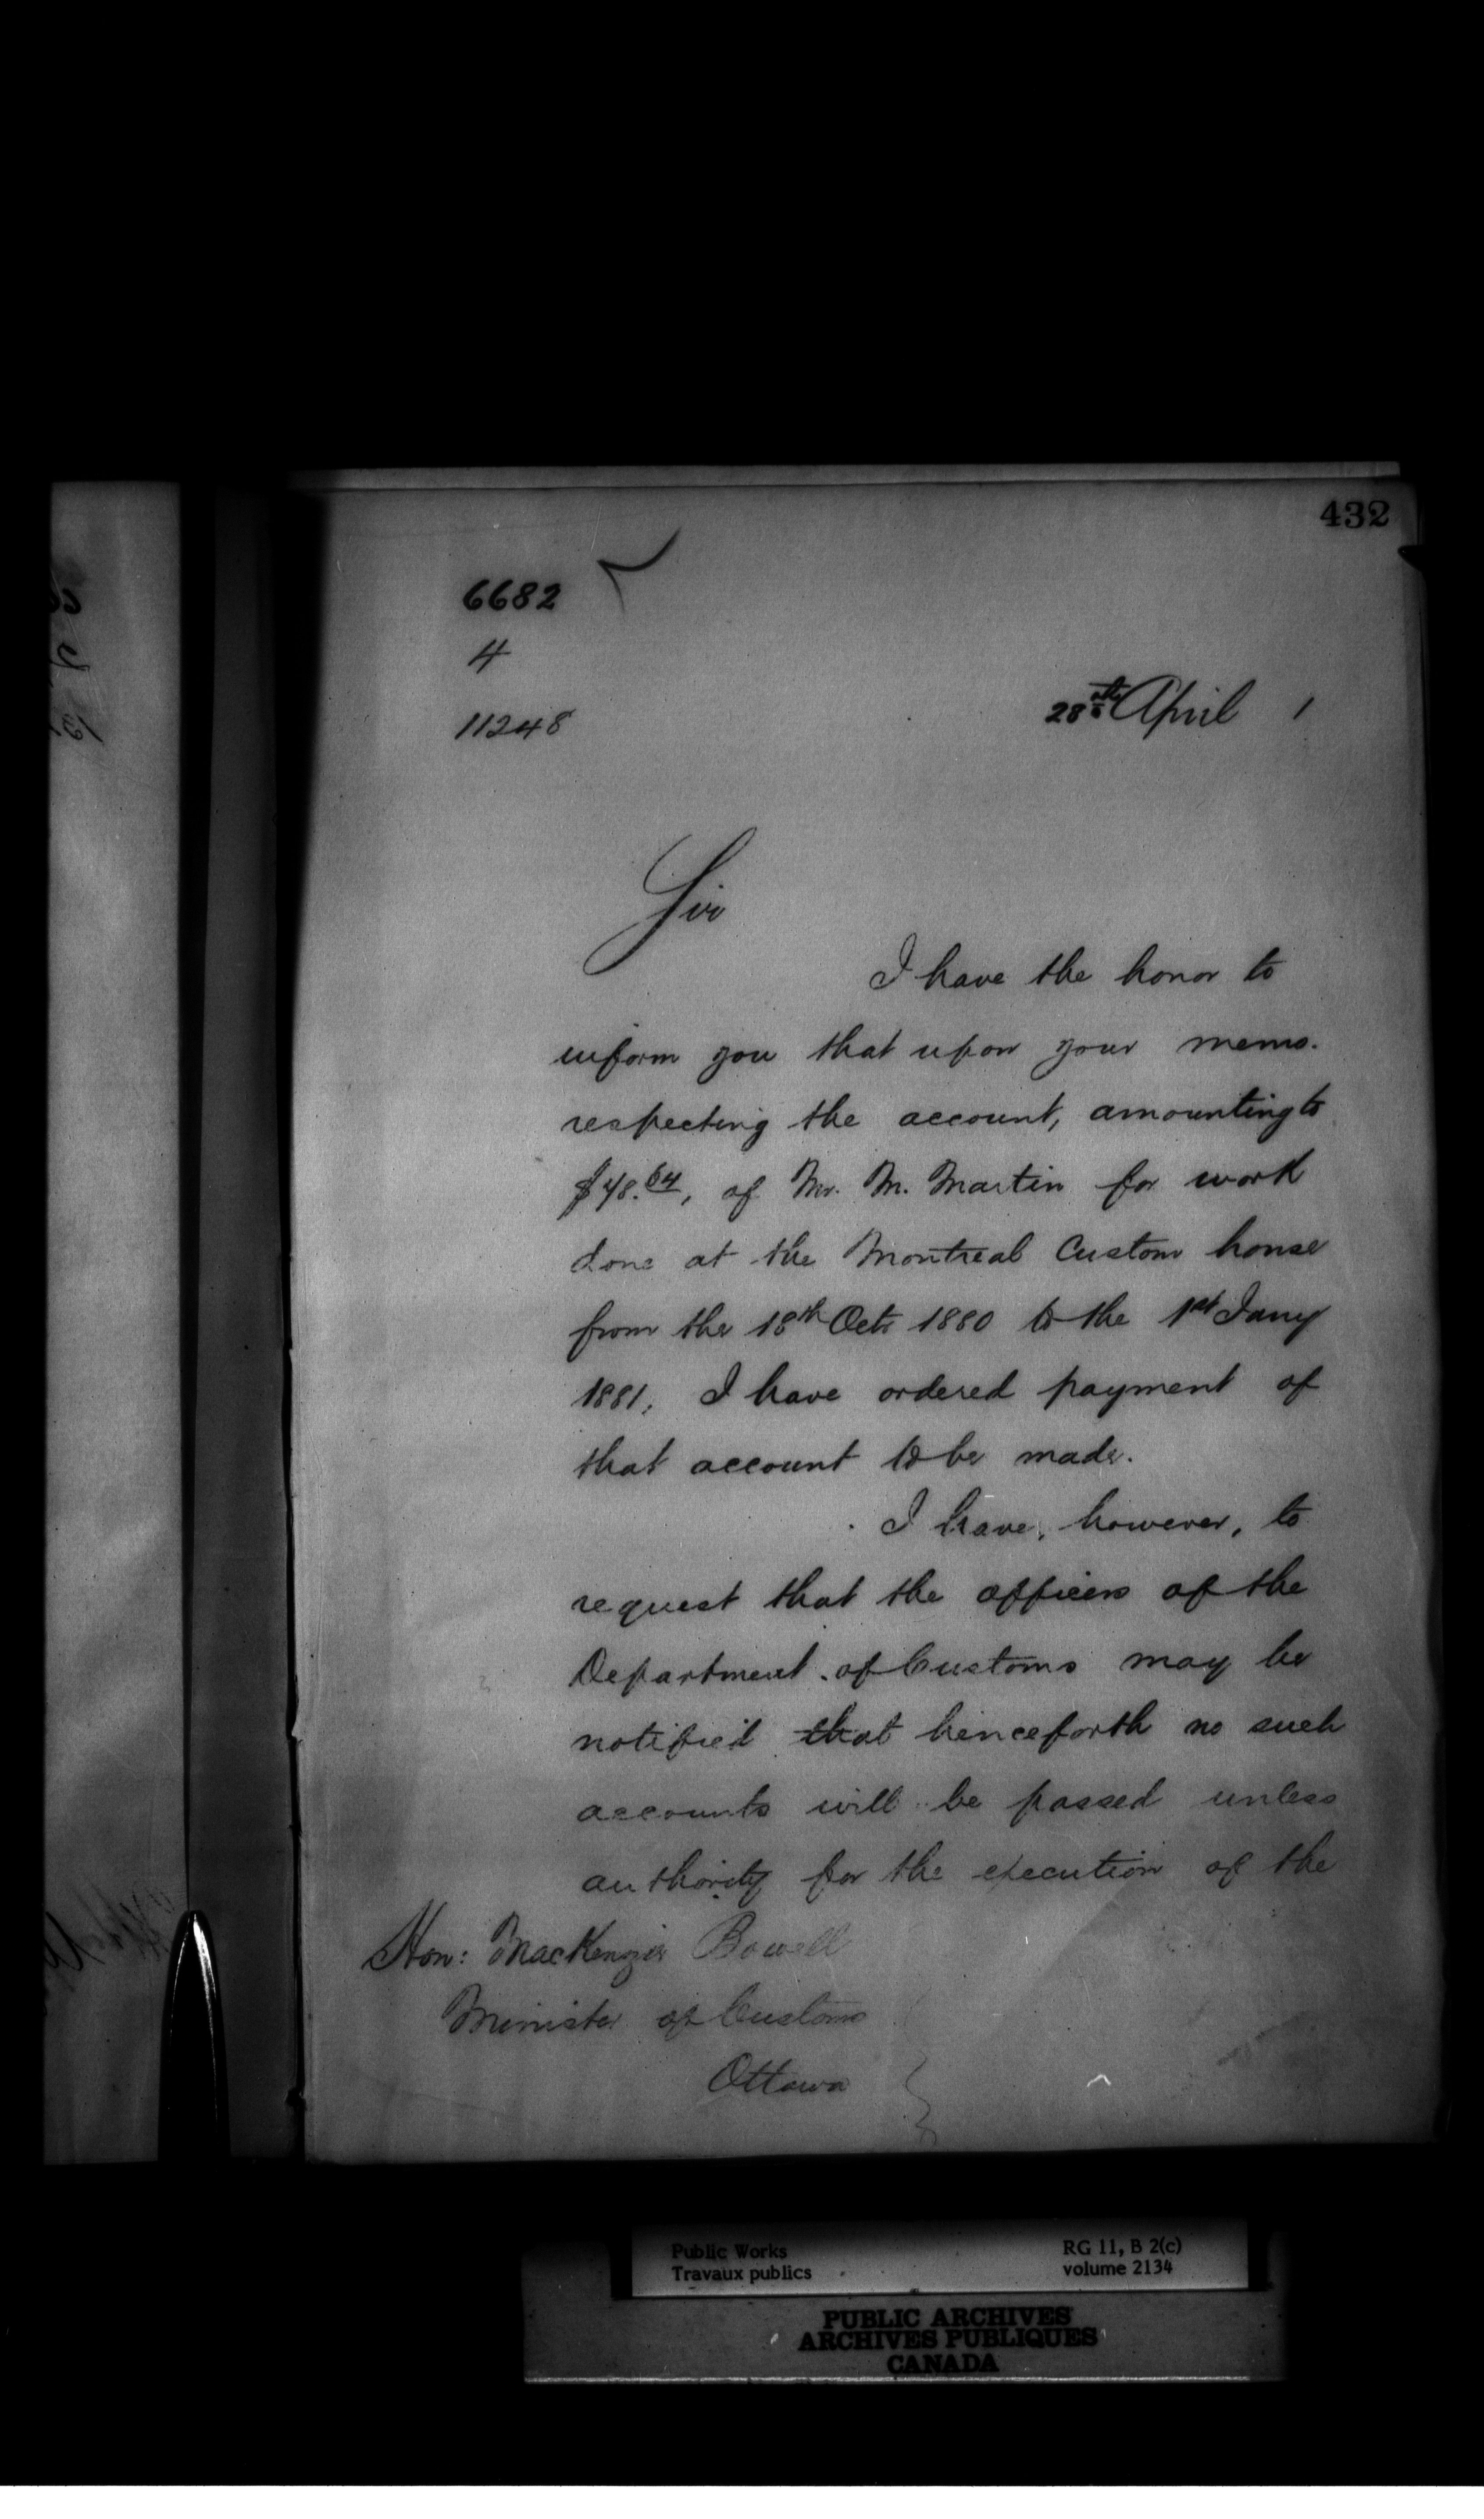 432
6682
4
11248
28th April 1
Sir
I have the honor to
inform you that upon your memo.
respecting the account, amounting to
$48.64, of Mr. M. Martin for work
done at the Montreal Custom house
from the 18th Octr 1880 to the 1st Jany
1881, I have ordered payment of
that account to be made.
I have, however, to
request that the officers of the
Department of Customs may be
notified that henceforth no such
accounts will be passed unless
authority for the execution of the
Hon: MacKenzie Bowell
Minister of Customs
Ottawa
Public Works
Travaux publics
RG 11, B 2(c)
volume 2134
PUBLIC ARCHIVES
ARCHIVES PUBLIQUES
CANADA